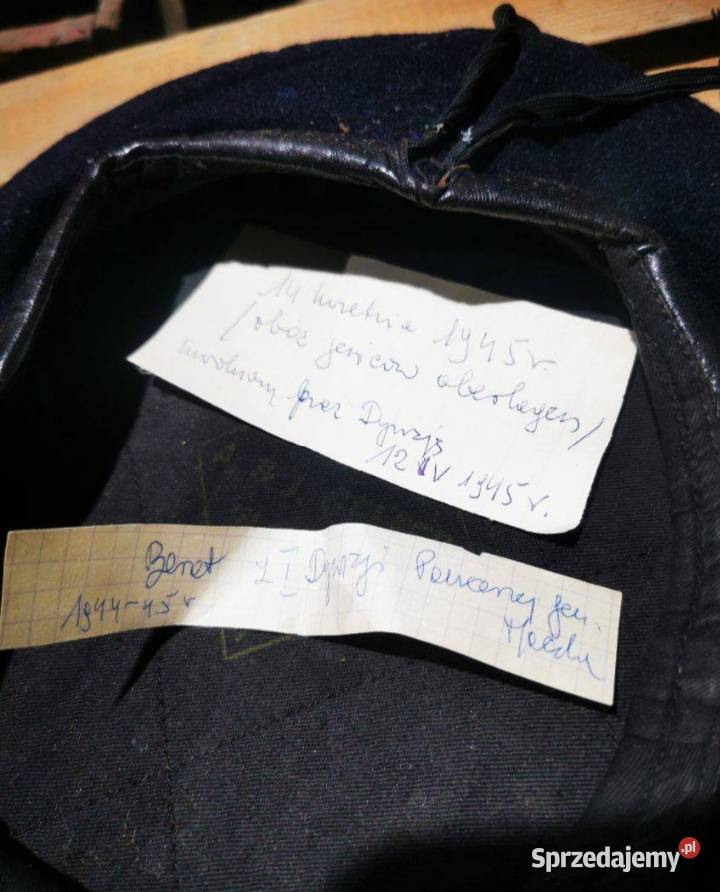 14 kwietnia 1945 r.
/obóz jeńców oberlagen/
uwolniony przez Dywizję
12 IV 1945 r.
Beret z I Dywizji Pancernej gen.
1944-45 r.
Maczka
Sprzedajemy.pl